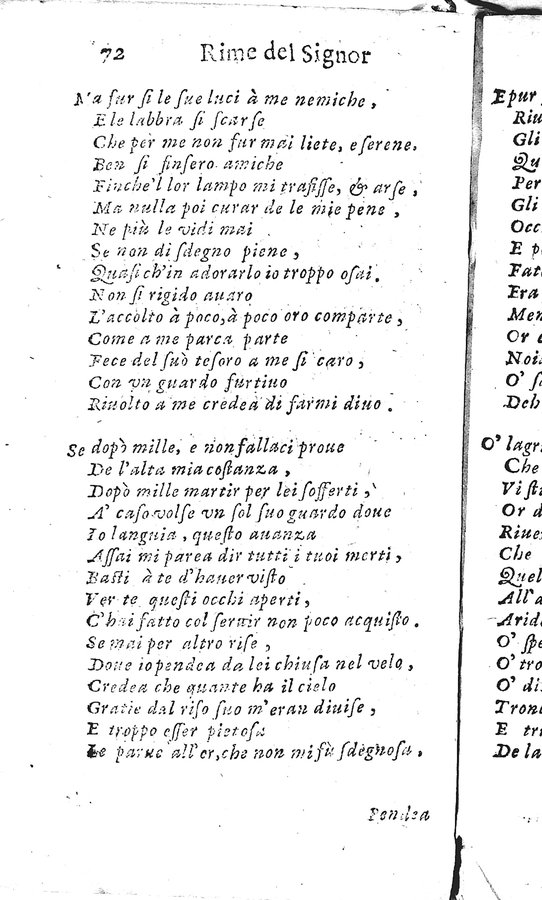 72 Rime del Signor
Ma fur ſi le ſue luci à me nemiche,
E le labbra ſi ſcarſe
Che per me non fur mai liete, e ſerene.
Ben ſi finſero amiche
Finche'l lor lampo mi trafiſſe, & arſe,
Ma nulla poi curar de le mie pene,
Ne più le vidi mai
Se non di ſdegno piene,
Quaſi ch'in adorarlo io troppo oſai.
Non ſi rigido auaro
L'accolto à poco, à poco oro comparte,
Come a me parca parte
Fece del ſuò teſoro a me ſi caro,
Con vn guardo furtiuo
Riuolto a me credea di farmi diuo.
Se dopò mille, e non fallaci proue
De l'alta mia coſtanza,
Dopò mille martir per lei ſofferti,
A' caſo volſe vn ſol ſuo guardo doue
Io languia, queſto auanza
Aſſai mi parea dir tutti i tuoi merti,
Baſti à te d'hauer viſto
Ver te queſti occhi aperti,
C'hai fatto col ſeruir non poco acquiſto.
Se mai per altro riſe,
Doue io pendea da lei chiuſa nel velo,
Credea che quante ha il cielo
Gratie dal riſo ſuo m'eran diuiſe,
E troppo eſſer pietoſa
Le parue all'er, che non mi fù ſdegnoſa.
Pendea
Epur
Riu
Gli
Qu
Per
Gli
Occ
E p
Fat
Era
Men
Or
Noi
O' ſ
Deh
O' lagr
Che
Viſti
Or d
Riue
Che
Quel
All'a
Arid
O' ſpe
O' tro
O' di
Tron
E tri
De la